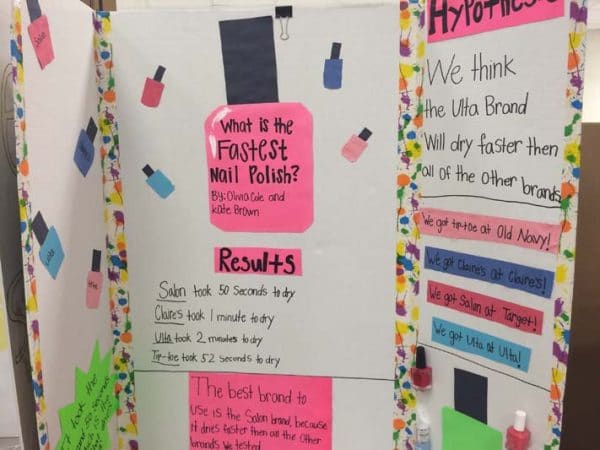 Salon
Ulta
What is the
Fastest
Nail Polish?
By: Olivia Cole and
Kate Brown
Results
Salon took 50 seconds to dry
Claires took 1 minute to dry
Ulta took 2 minutes to dry
Tip-toe took 52 seconds to dry
The best brand to
use is the Salon brand, because
it dries faster then all the other
brands we tested
Hypothesis
We think
the Ulta Brand
Will dry faster then
all of the other brands
We got tip-toe at Old Navy!
We got Claire's at Claire's!
We got Salon at Target!
We got Ulta at Ulta!
It took the